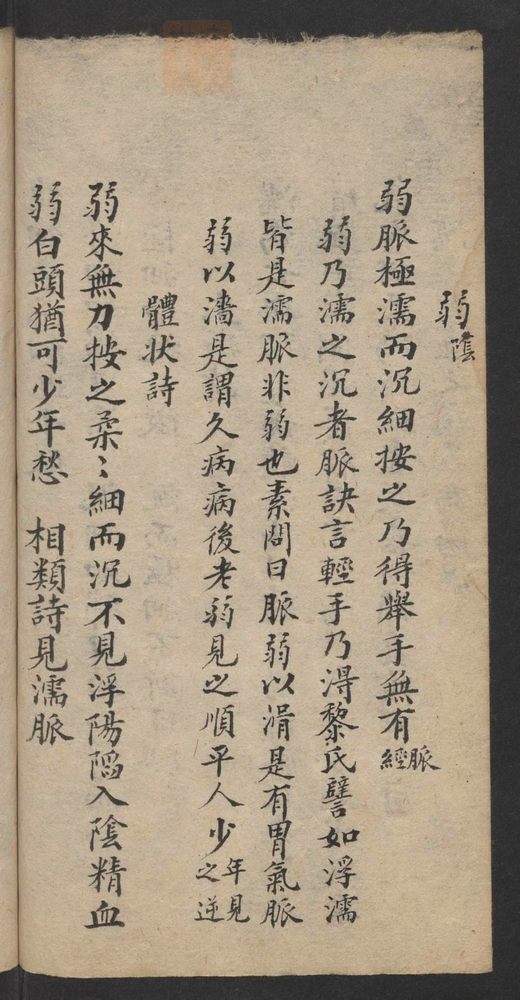 弱陰
弱脈極濡而沉細按之乃得舉手無有脈經
弱乃濡之沉者脈訣言輕手乃淂黎氏譬如浮濡
皆是濡脈非弱也素問曰脈弱以滑是有胃氣脈
弱以濇是謂久病病後老弱見之順平人少年見之逆
體状詩
弱來無力按之柔〻細而沉不見浮陽陷入陰精血
弱白頭猶可少年愁　相類詩見濡脈